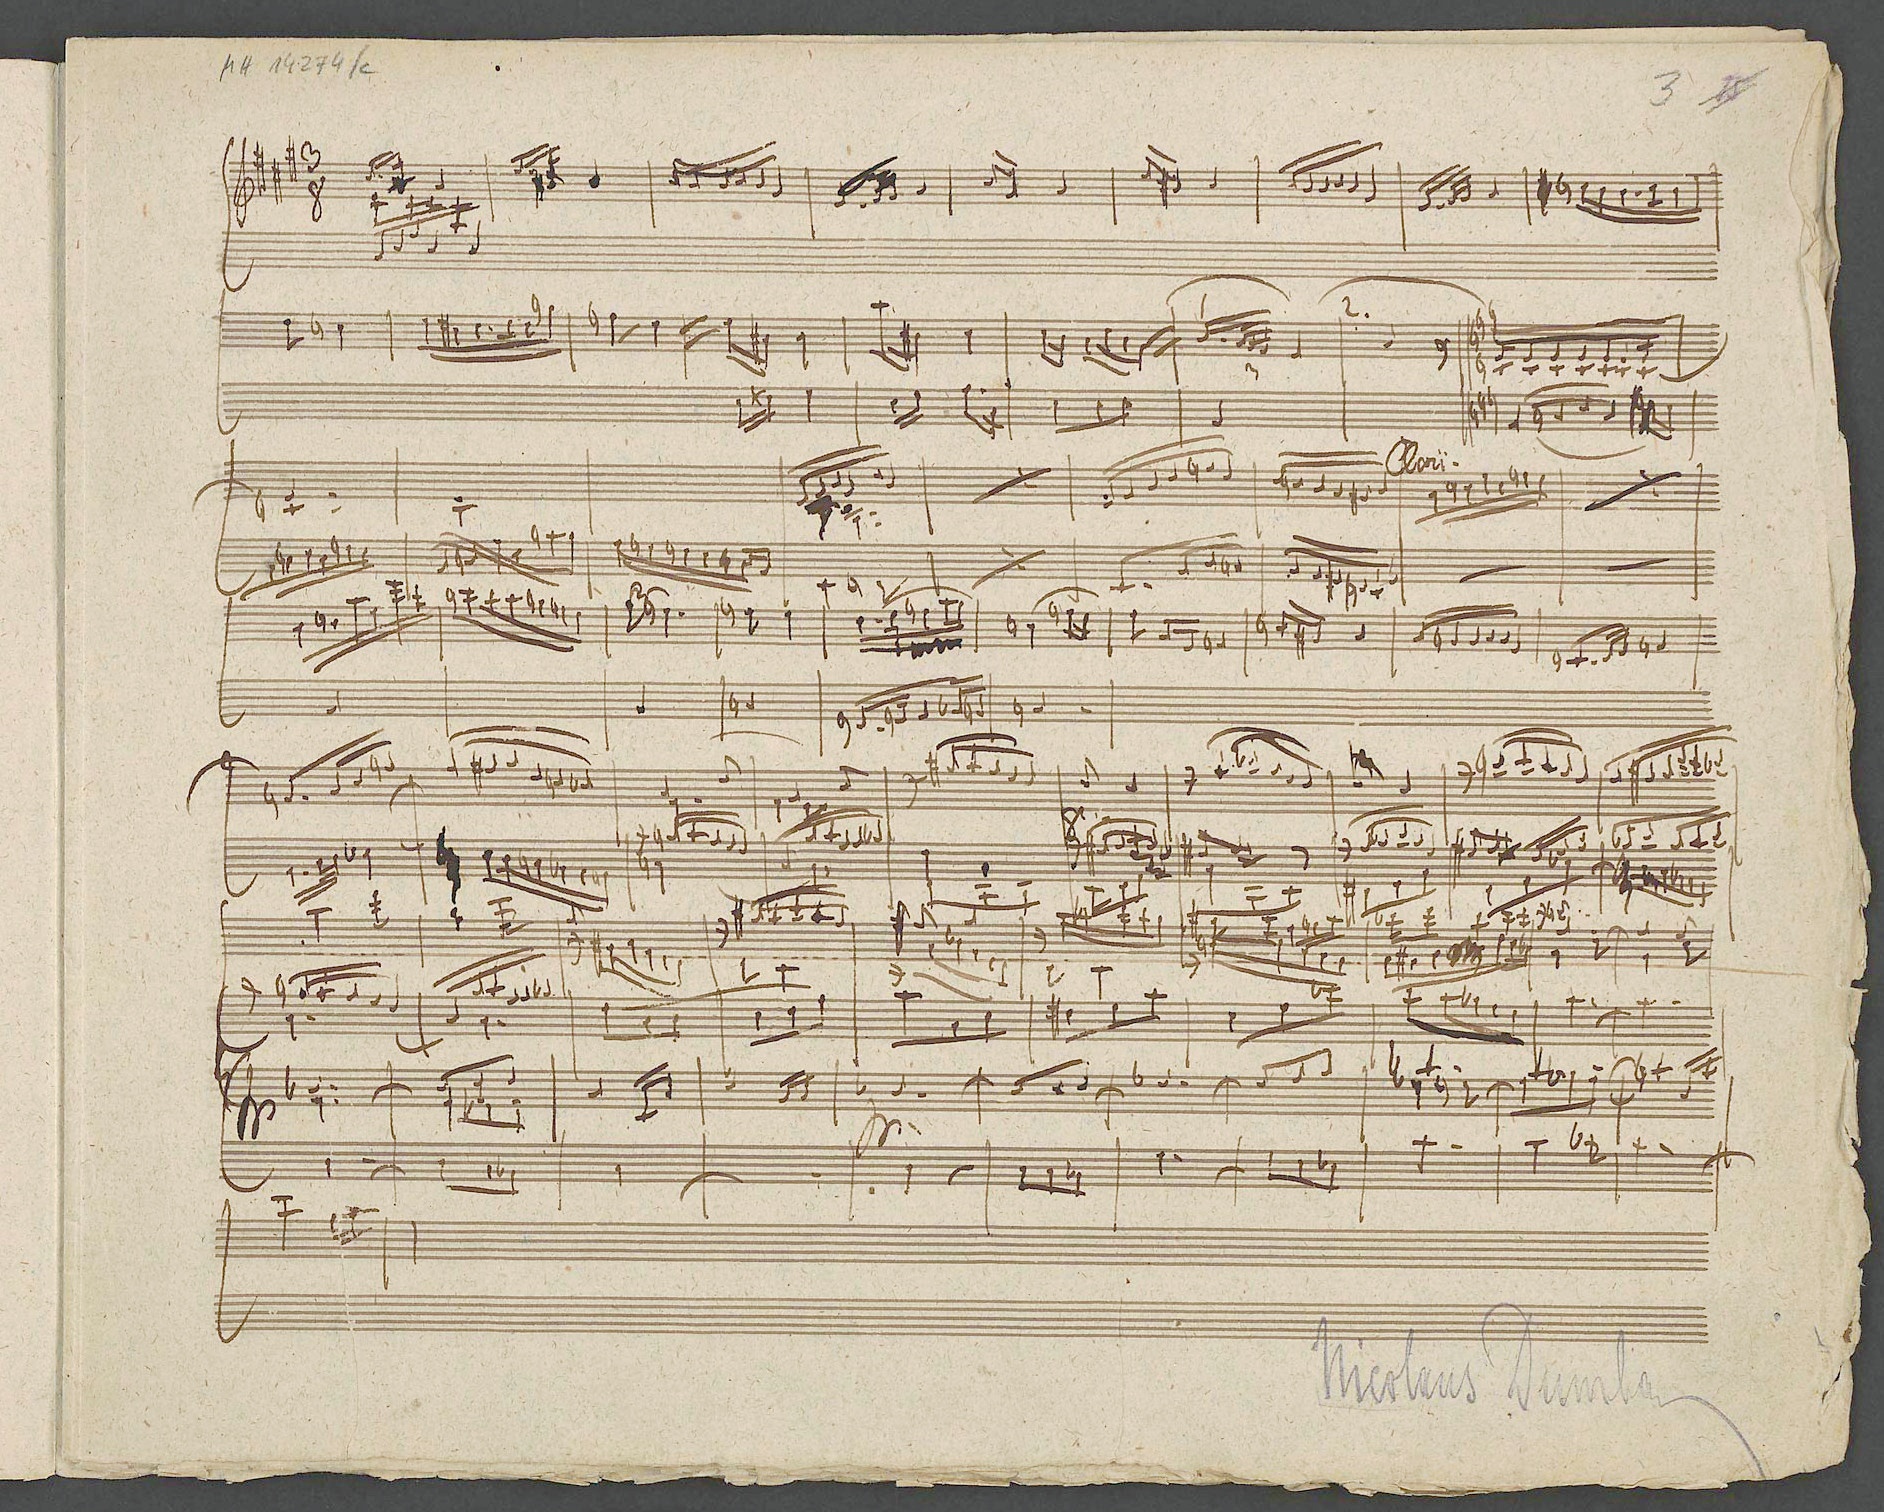 MH 14274/c
3
3
8
2.
3
Clari-
8.
Nicolaus Dumba